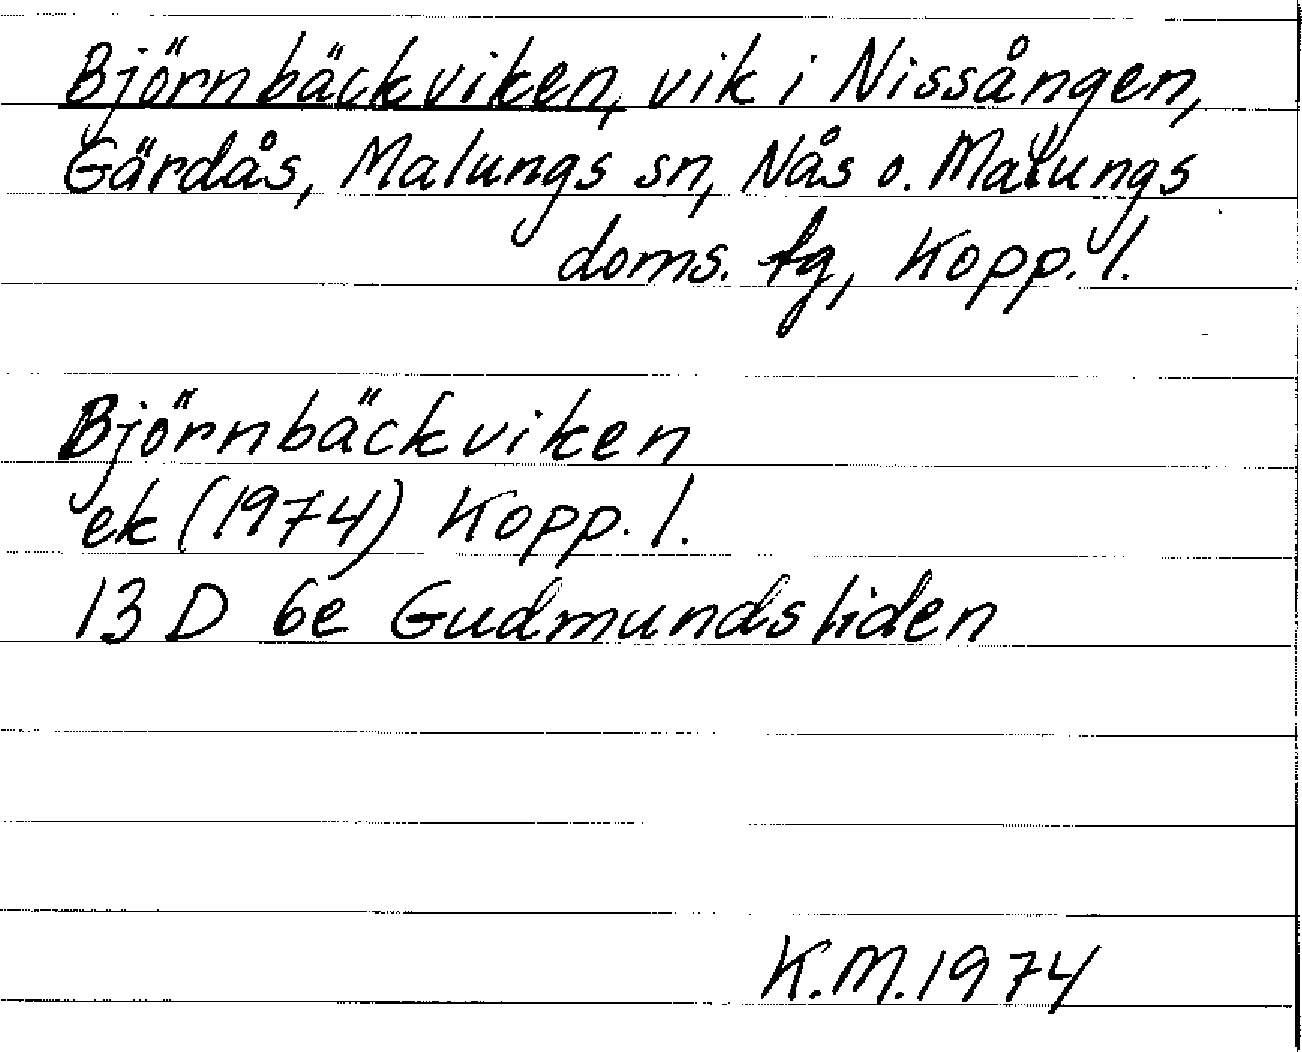 Björnbäckviken, vik i Nissången,
Gärdås, Malungs sn, Nås o. Malungs
doms. tg, Kopp. l.
Björnbäckviken
ek (1974) Kopp. l.
13 D 6e Gudmundsliden
K.M. 1974